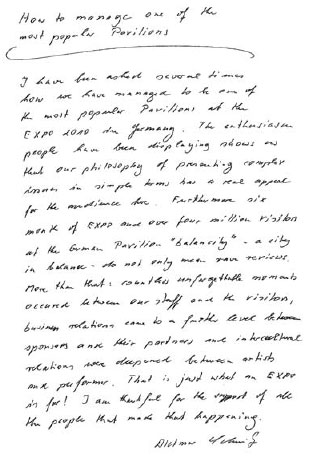 How to manage one of the
most popular Pavilions
I have been asked several times
how we have managed to be one of
the most popular Pavilions at the
EXPO 2010 du Germany. The enthusiasm
people have been displaying shows us
that our philosophy of presenting complex
issues in simple terms has a real appeal
for the audience here. Furthermore six
month of EXPO and over four million visitors
at the German Pavilion "balancity" - a city
in balance - do not only mean rave reviews.
More than that: countless unforgettable moments
occured between our staff and the visitors,
business relations came to a further level between
sponsors and their partners and intercultural
relations were deepened between artists
and performer. That is just what an EXPO
is for! I am thankful for the support of all
the people that made that happening.
Dietmar